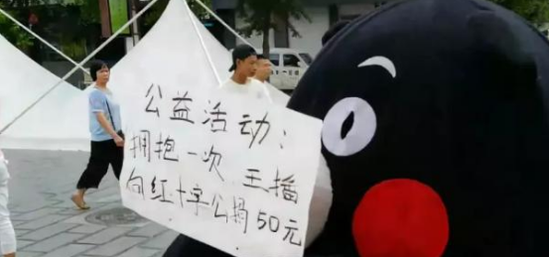 公益活动：
拥抱一次 主播
向红十字公捐50元